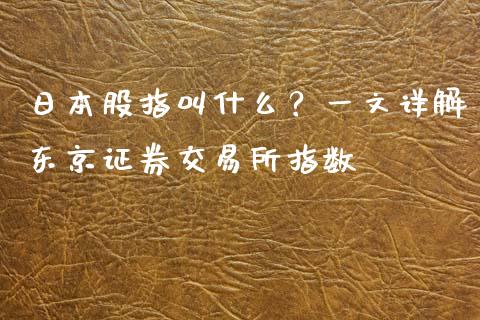 日本股指叫什么？一文详解
东京证券交易所指数